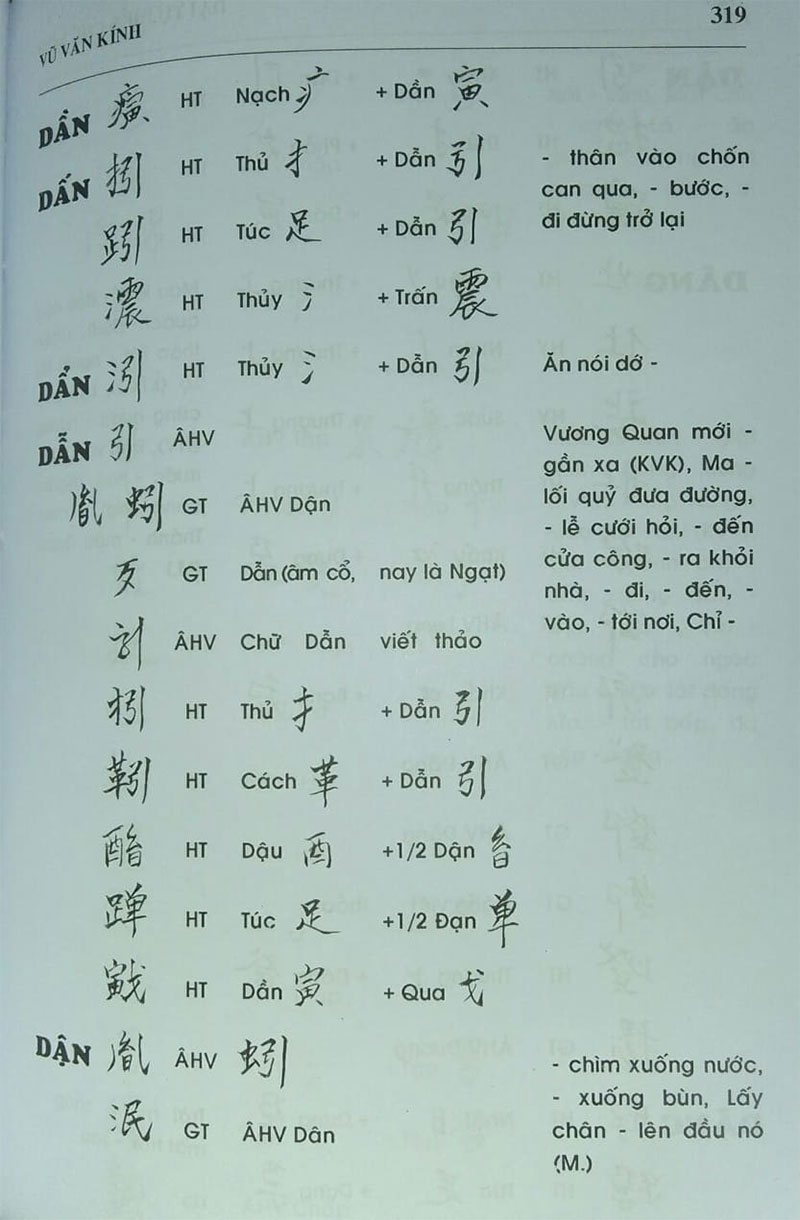 VŨ VĂN KÍNH 319
DẦN HT Nạch 疒 + Dần 寅
DẤN 𢪉 HT Thủ 扌 + Dẫn 引 - thân vào chốn
can qua, - bước, -
HT Túc 足 + Dẫn 引 đi đừng trở lại
HT Thủy 氵 + Trấn 震
DẨN HT Thủy 氵 + Dẫn 引 Ăn nói dớ -
DẪN 引 ÂHV Vương Quan mới -
gần xa (KVK), Ma -
胤 蚓 GT ÂHV Dận lối quỷ đưa đường,
- lễ cưới hỏi, - đến
歹 GT Dẫn (âm cổ, nay là Ngạt) cửa công, - ra khỏi
nhà, - đi, - đến, -
ÂHV Chữ Dẫn viết thảo vào, - tới nơi, Chỉ -
HT Thủ 扌 + Dẫn 引
靷 HT Cách 革 + Dẫn 引
HT Dậu 酉 +1/2 Dận
HT Túc 足 +1/2 Đạn 单
HT Dần 寅 + Qua 戈
DẬN 胤 ÂHV 蚓 - chìm xuống nước,
- xuống bùn, Lấy
泯 GT ÂHV Dân chân - lên đầu nó
(M.)